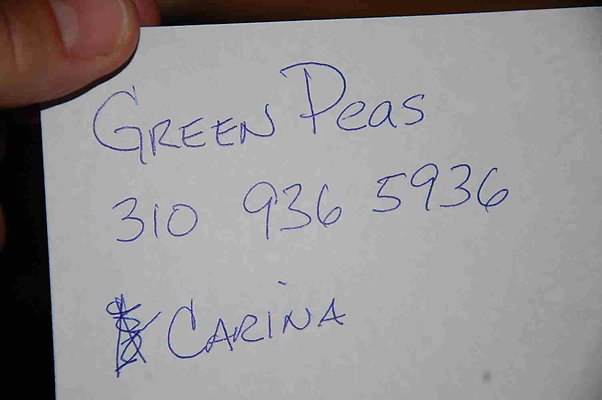 GREEN Peas
310 936 5936
CARINA